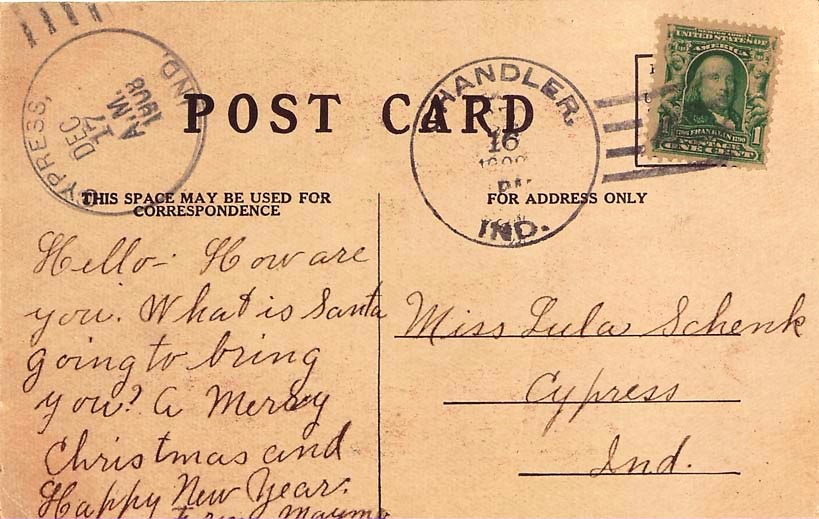 CYPRESS, IND.
DEC
17
A.M.
1908
POST CARD
CHANDLER,
16
1908
IND.
UNITED STATES OF
AMERICA
FRANKLIN
1 POSTAGE 1
ONE CENT
THIS SPACE MAY BE USED FOR
CORRESPONDENCE
FOR ADDRESS ONLY
Hello- How are
you. What is Santa
going to bring
you? A Merry
Christmas and
Happy New Year.
Miss Lula Schenk
Cypress
Ind.